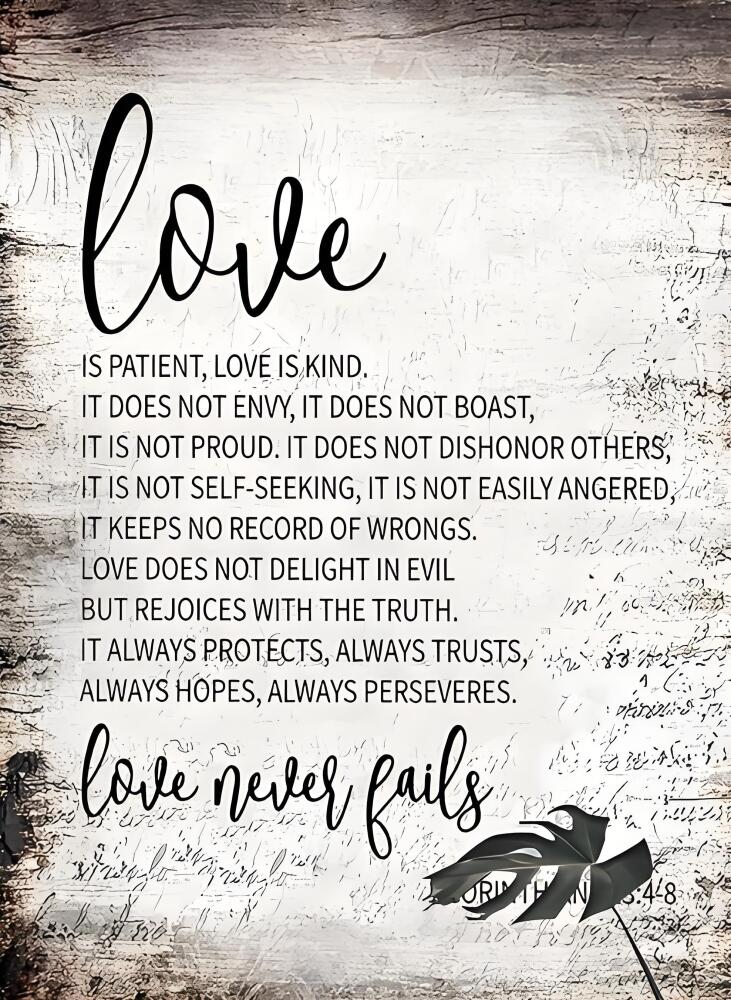 love
IS PATIENT, LOVE IS KIND.
IT DOES NOT ENVY, IT DOES NOT BOAST,
IT IS NOT PROUD. IT DOES NOT DISHONOR OTHERS,
IT IS NOT SELF-SEEKING, IT IS NOT EASILY ANGERED,
IT KEEPS NO RECORD OF WRONGS.
LOVE DOES NOT DELIGHT IN EVIL
BUT REJOICES WITH THE TRUTH.
IT ALWAYS PROTECTS, ALWAYS TRUSTS,
ALWAYS HOPES, ALWAYS PERSEVERES.
love never fails
:4-8